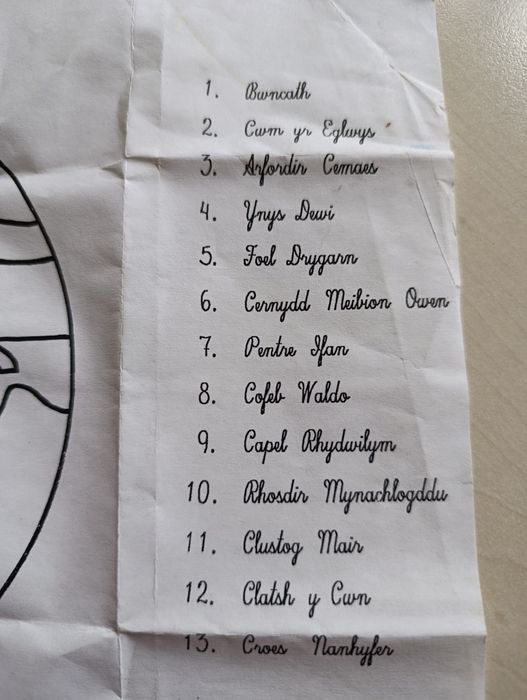 1. Bwncath
2. Cwm yr Eglwys
3. Arfordir Cemaes
4. Ynys Dewi
5. Foel Drygarn
6. Cernydd Meibion Owen
7. Pentre Ifan
8. Cofeb Waldo
9. Capel Rhydwilym
10. Rhosdir Mynachlogddu
11. Clustog Mair
12. Clatsh y Cwn
13. Croes Nanhyfer